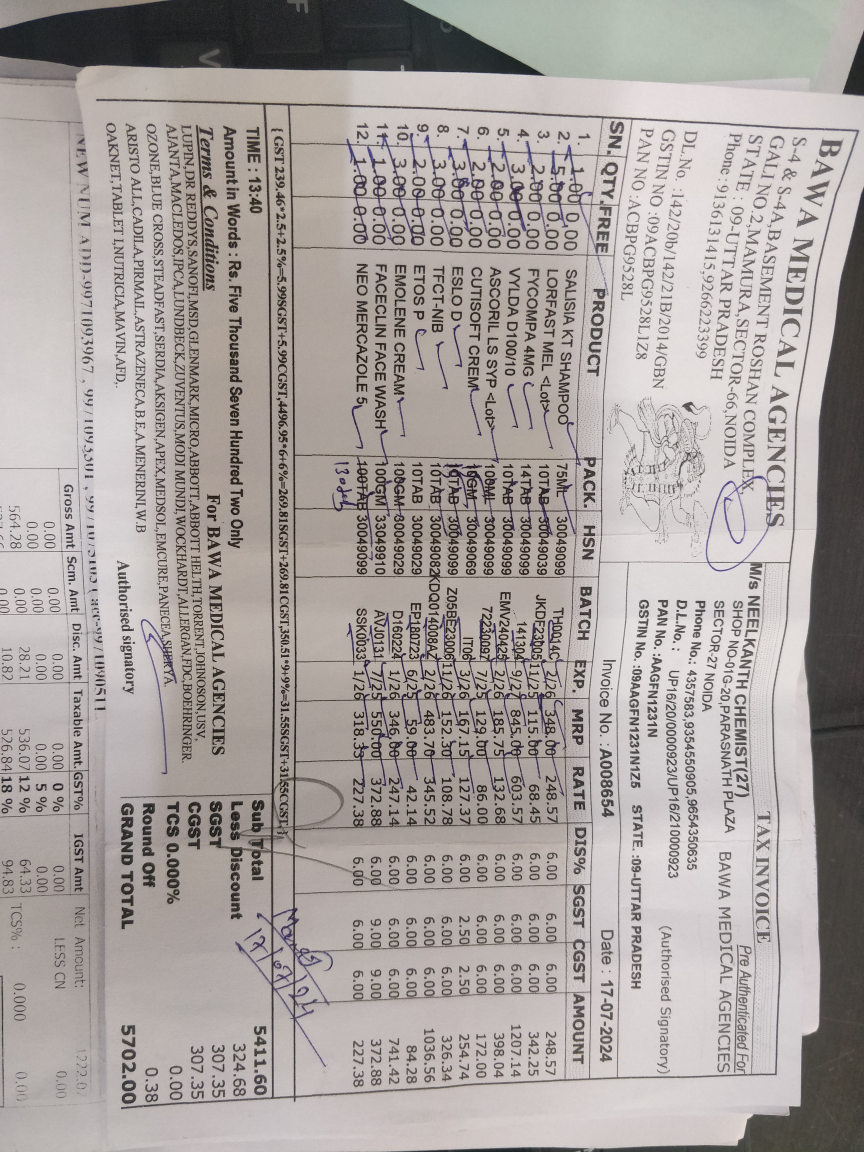 BAWA MEDICAL AGENCIES
S-4 & S-4A,BASEMENT ROSHAN COMPLEX
GALI NO.2,MAMURA,SECTOR-66,NOIDA
STATE : 09-UTTAR PRADESH
Phone : 9136131415,9266223399
DL.No. :142/20b/142/21B/2014/GBN
GSTIN NO :09ACBPG9528L1Z8
PAN NO :ACBPG9528L
TAX INVOICE
Pre Authenticated For
M/s NEELKANTH CHEMIST(27)
SHOP NO-01G-20,PARASINATH PLAZA BAWA MEDICAL AGENCIES
SECTOR-27 NOIDA
Phone No.: 4357583,9354550905,9654350635
D.L.No. : UP16/20/0000923/UP16/210000923
PAN No. :AAGFN1231N (Authorised Signatory)
GSTIN No. :09AAGFN1231N1Z5 STATE. :09-UTTAR PRADESH
Invoice No. : A008654 Date : 17-07-2024
SN. QTY.FREE PRODUCT PACK. HSN BATCH EXP. MRP RATE DIS% SGST CGST AMOUNT
1. 1.00 0.00 SALISIA KT SHAMPOO 75ML 30049099 TH0014C 2/26 348.00 248.57 6.00 6.00 6.00 248.57
2. 5.00 0.00 LORFAST MEL <Lot> 10TAB 30049039 JKDE23005 11/25 115.00 68.45 6.00 6.00 6.00 342.25
3. 2.00 0.00 FYCOMPA 4MG 14TAB 30049099 141304 9/27 845.00 603.57 6.00 6.00 6.00 1207.14
4. 3.00 0.00 VYLDA D100/10 10TAB 30049099 EMV240425 2/26 185.75 132.68 6.00 6.00 6.00 398.04
5. 2.00 0.00 ASCORIL LS SYP <Lot> 100ML 30049099 72230097 7/25 129.00 86.00 6.00 6.00 6.00 172.00
6. 2.00 0.00 CUTISOFT CREM 10GM 30049069 IT06 3/26 167.15 127.37 6.00 2.50 2.50 254.74
7. 3.00 0.00 ESLO D 10TAB 30049099 Z05BE23006 11/26 152.30 108.78 6.00 6.00 6.00 326.34
8. 3.00 0.00 TFCT-NIB 10TAB 30049082 KDQ0014008AZ 2/26 483.70 345.52 6.00 6.00 6.00 1036.56
9. 2.00 0.00 ETOS P 10TAB 30049029 EP180723 6/25 59.00 42.14 6.00 6.00 6.00 84.28
10. 3.00 0.00 EMOLENE CREAM 100GM 30049029 D16022A 1/26 346.00 247.14 6.00 6.00 6.00 741.42
11. 1.00 0.00 FACECLIN FACE WASH 100GM 33049910 AVJ0131 7/25 550.00 372.88 6.00 9.00 9.00 372.88
12. 1.00 0.00 NEO MERCAZOLE 5 100TAB 30049099 SSK0033 1/26 318.33 227.38 6.00 6.00 6.00 227.38
{ GST 239.46*2.5+2.5%=5.99SGST+5.99CGST,4496.95*6+6%=269.81SGST+269.81CGST,350.51*9+9%=31.55SGST+31.55CGST,}
17/07/24
TIME : 13:40
Amount in Words : Rs. Five Thousand Seven Hundred Two Only
Terms & Conditions For BAWA MEDICAL AGENCIES
LUPIN,DR REDDYS,SANOFI,MSD,GLENMARK,MICRO,ABBOTT,ABBOTT HELTH,TORRENT,JOHNOSON,USV,
AJANTA,MACLEDOS,IPCA,LUNDBECK,ZUVENTUS,MODI MUNDI,WOCKHARDT,ALLERGAN,FDC,BOEHRINGER.
OZONE,BLUE CROSS,STEADFAST,SERDIA,AKSIGEN,APEX,MEDSOL,EMCURE,PANECEA,SHRYA
ARISTO ALL,CADILA,PIRMAIL,ASTRAZENECA,B.E,A.MENERINI,W.B
OAKNET,TABLET I,NUTRICIA,MAVIN,AFD,.
Authorised signatory
Sub Total 5411.60
Less Discount 324.68
SGST 307.35
CGST 307.35
TCS 0.000% 0.00
Round Off 0.38
GRAND TOTAL 5702.00
Gross Amt Scm. Amt Disc. Amt Taxable Amt. GST% IGST Amt Net Amount: 1222.07
0.00 0.00 0.00 0.00 0 % 0.00 LESS CN 0.00
0.00 0.00 0.00 0.00 5 % 0.00
564.28 0.00 28.21 536.07 12 % 64.33 TCS% : 0.000 0.00
10.82 526.84 18 % 94.83